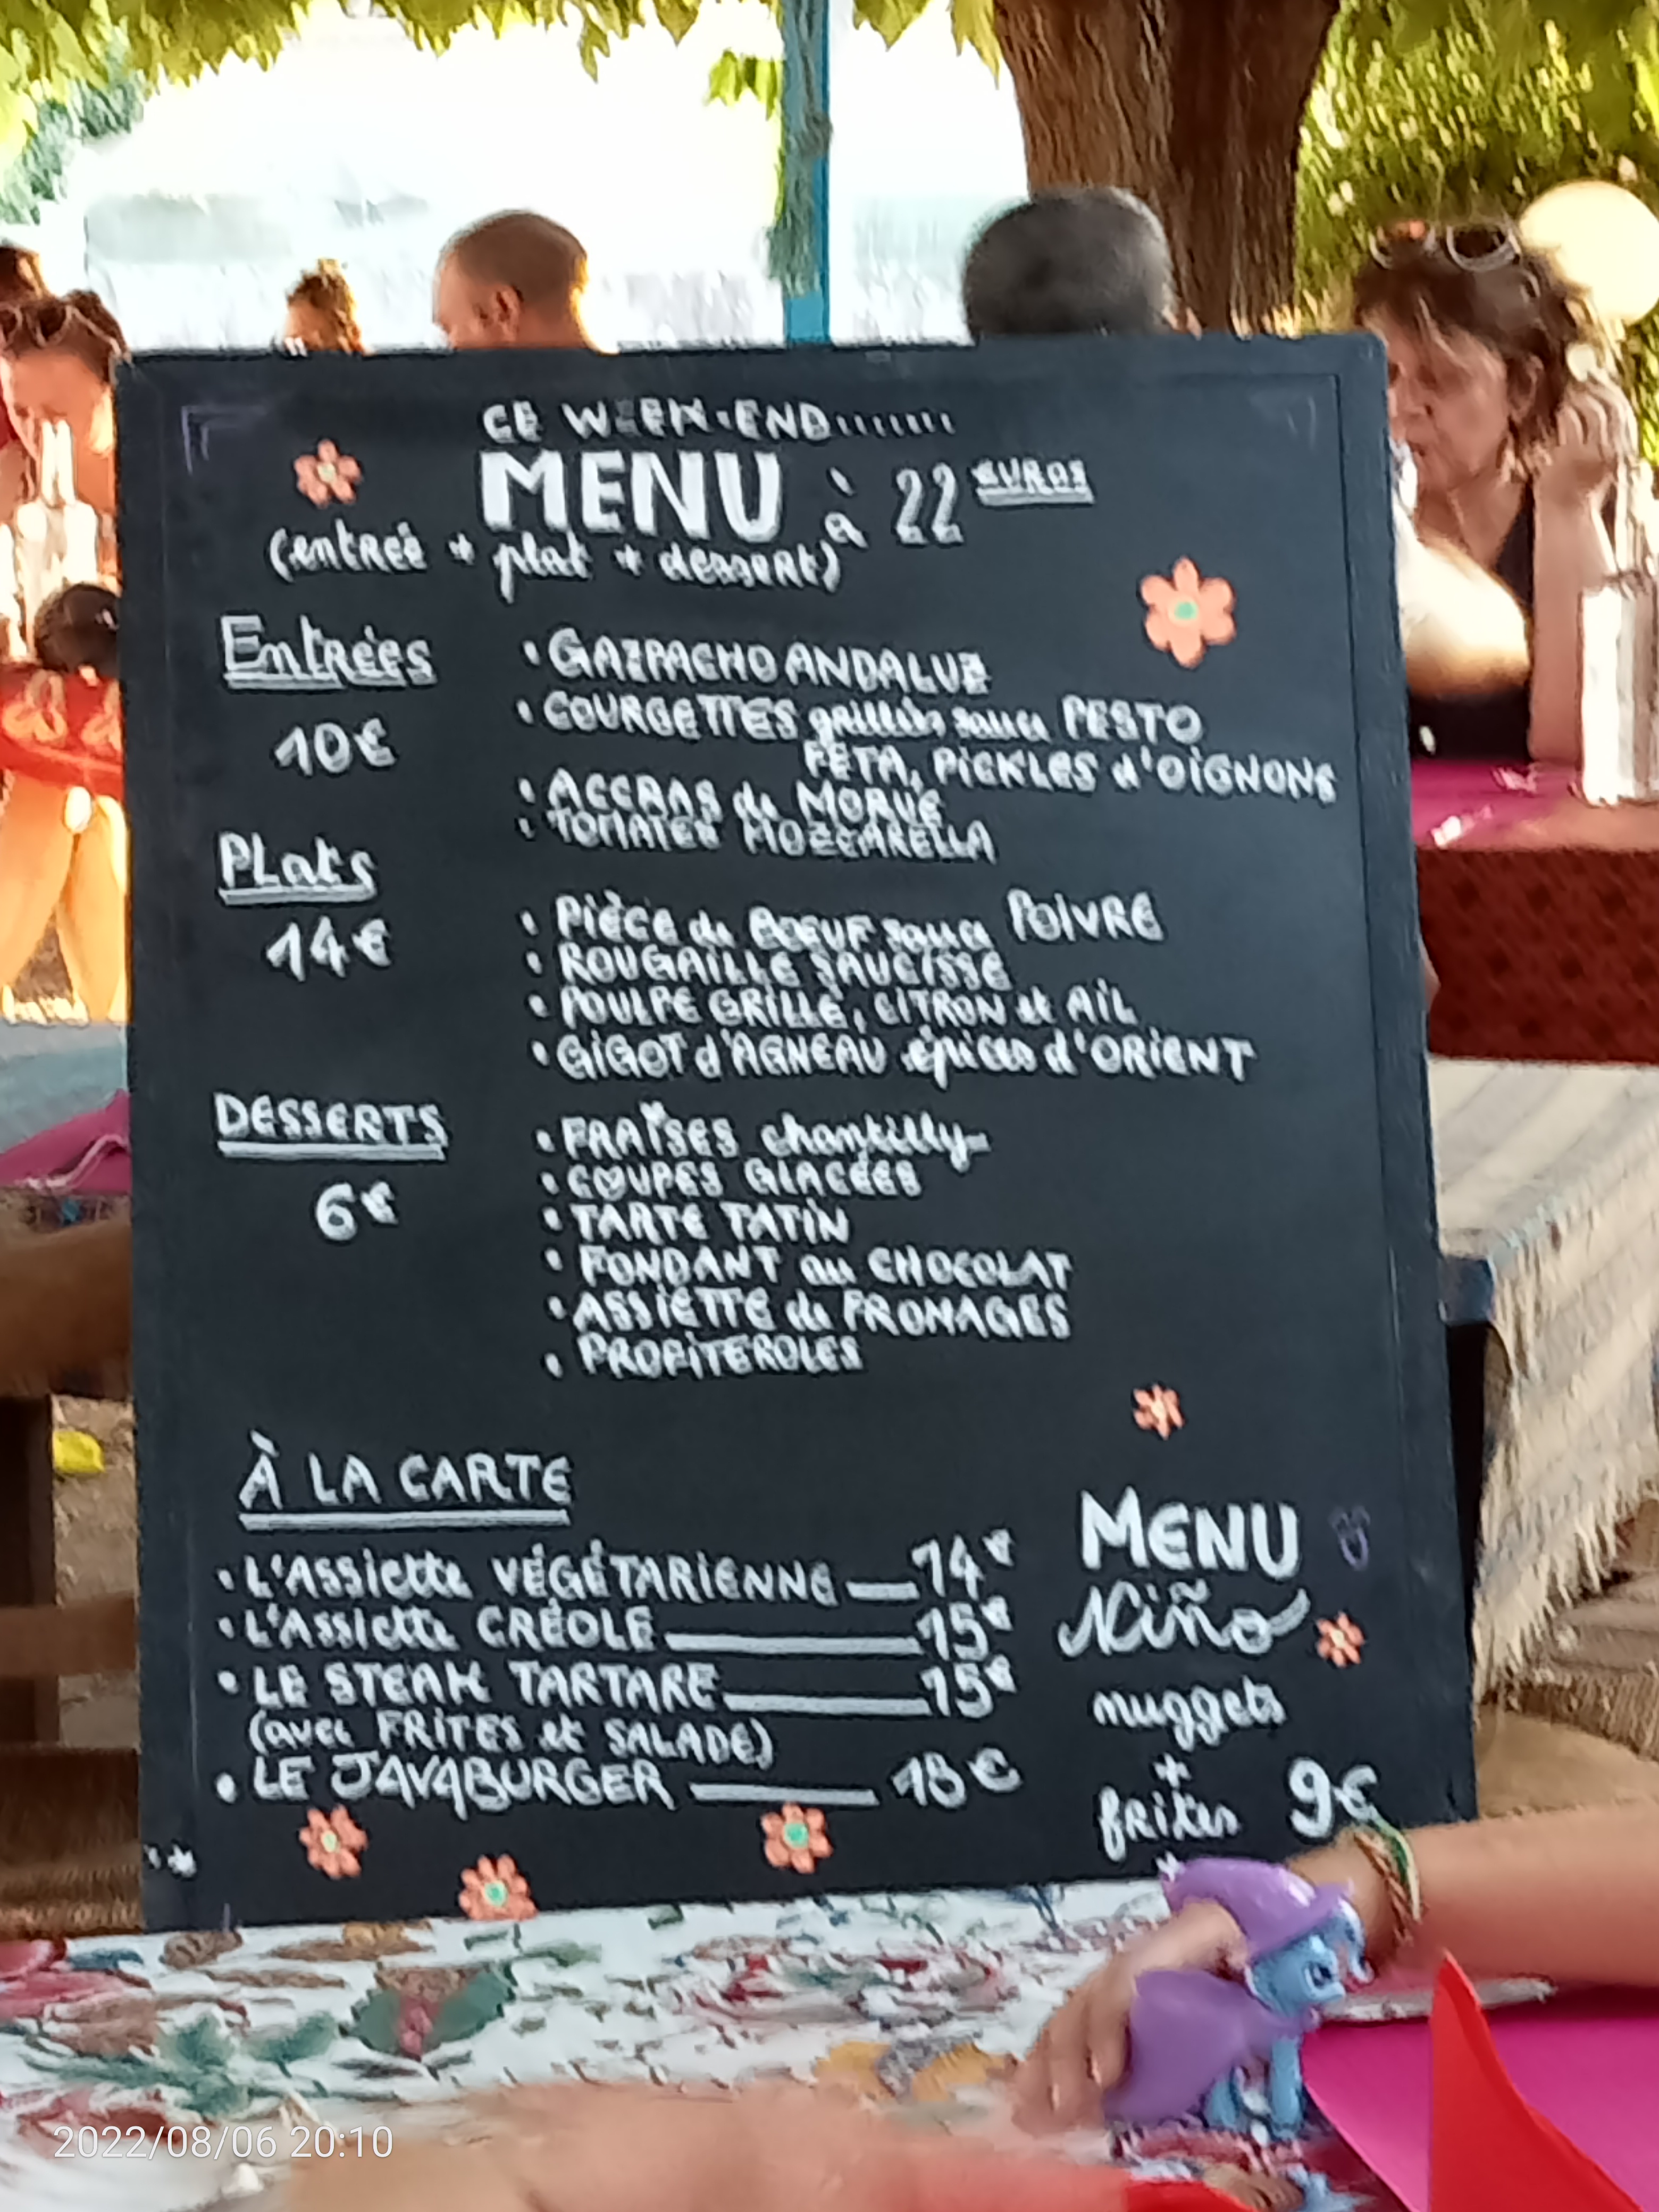 CE WEEK-END.......
MENU à 22 EUROS
(entrée + plat + dessert)
Entrées
10€
• GAZPACHO ANDALUZ
• COURGETTES grillées sauce PESTO
FETA, PICKLES d'OIGNONS
• ACCRAS de MORUE
• TOMATES MOZZARELLA
PLats
14€
• PIÈCE de BOEUF sauce POIVRE
• ROUGAILLE SAUCISSE
• POULPE GRILLÉ, CITRON et AIL
• GIGOT d'AGNEAU épices d'ORIENT
DESSERTS
6€
• FRAISES chantilly
• COUPES GLACÉES
• TARTE TATIN
• FONDANT au CHOCOLAT
• ASSIETTE de FROMAGES
• PROFITEROLES
À LA CARTE
• L'ASSIette VÉGÉTARIENNE — 14€
• L'ASSIette CRÉOLE — 15€
• LE STEAK TARTARE — 15€
(avec FRITES et SALADE)
• LE JAVABURGER — 18€
MENU
Niño
nuggets
+
frites 9€
+
2022/08/06 20:10